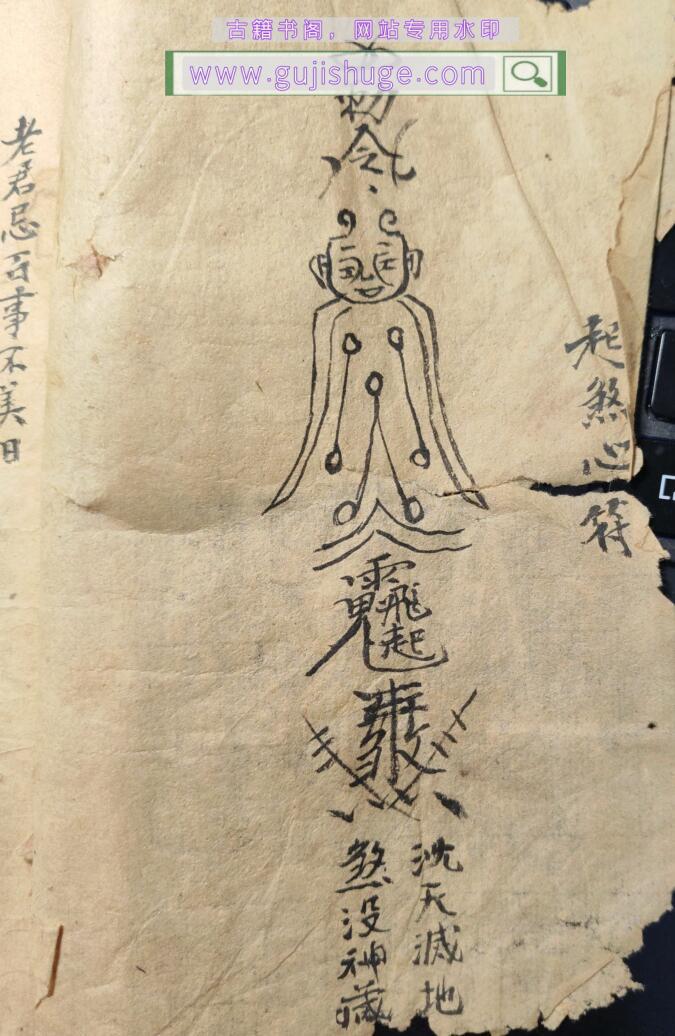 古籍书阁，网站专用水印
www.gujishuge.com
起煞心符
勅令
飛起
沈天滅地
煞没神藏
老君忌百事不美日